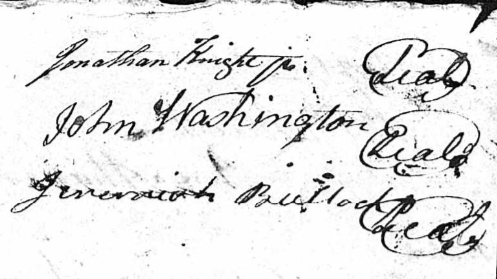 Jonathan Knight jr. Seal
John Washington Seal
Jeremiah Bullock Seal